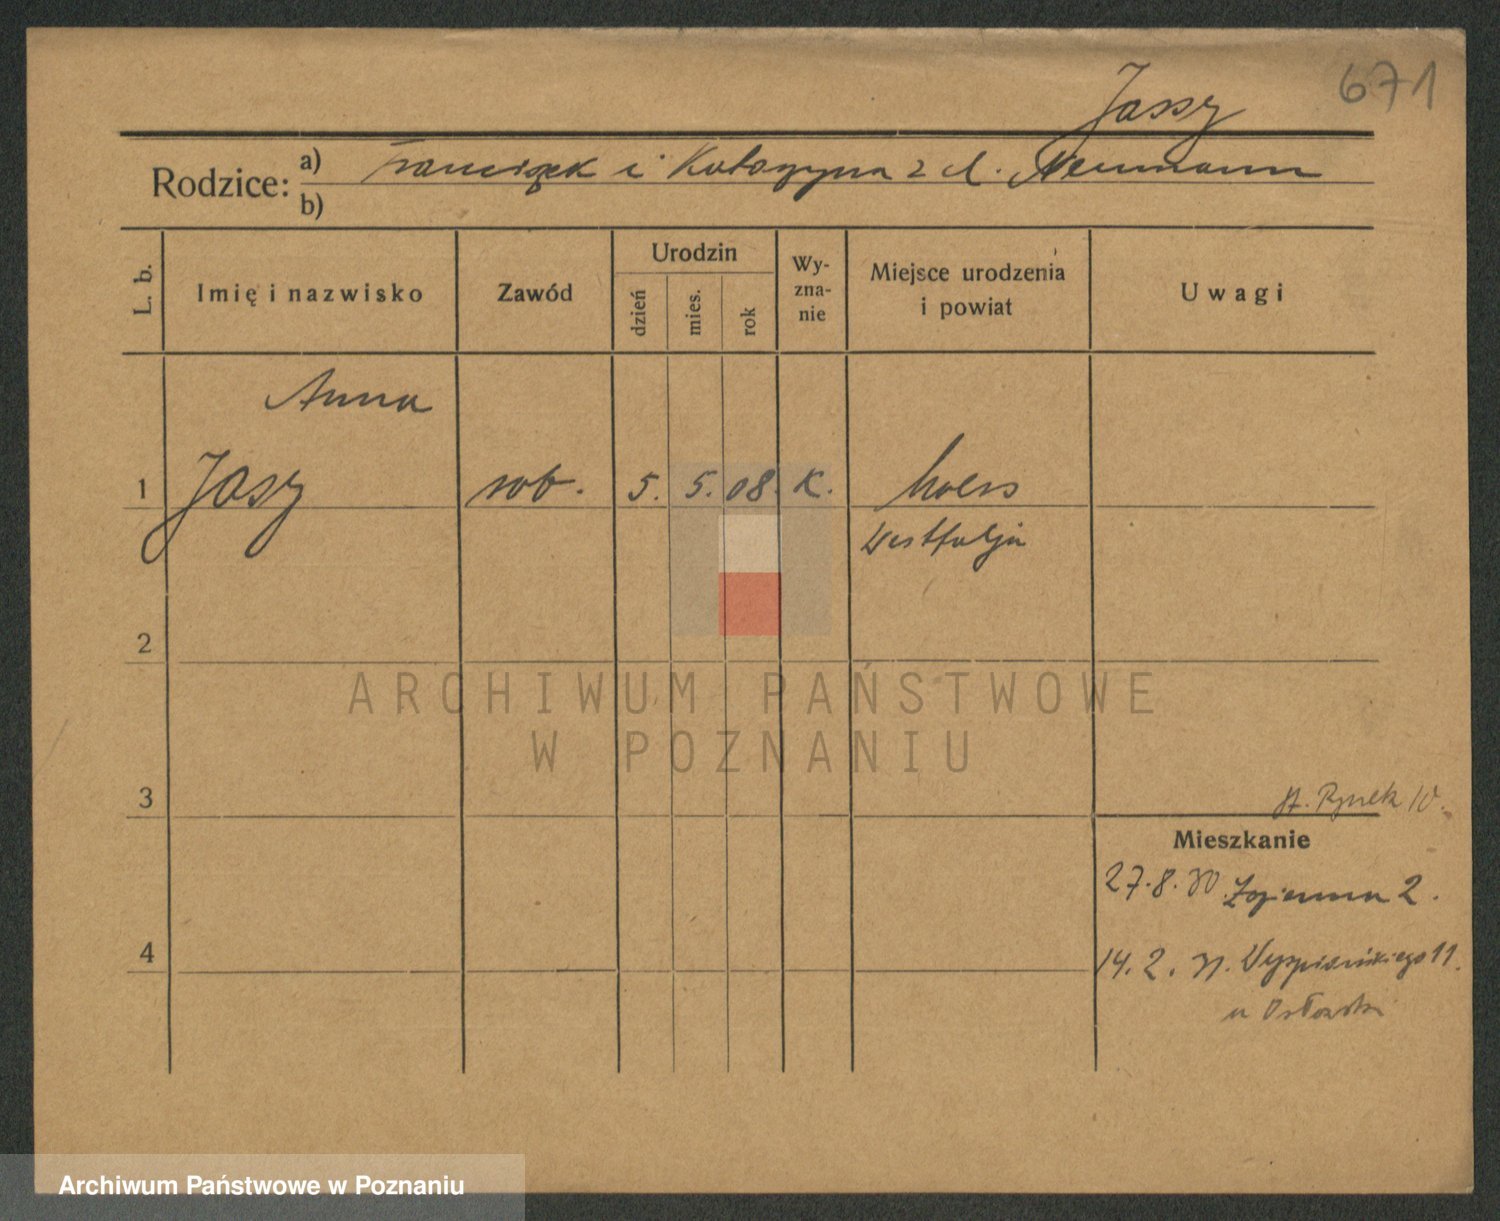 671
Jassy
Rodzice: a) Franciszek i Katarzyna z d. Neumann
b)
L. b.
Imię i nazwisko
Zawód
Urodzin
dzień
mies.
rok
Wy-
zna-
nie
Miejsce urodzenia
i powiat
Uwagi
Anna
1 Jasy rob. 5. 5. 08. K. Moers
Westfalja
2
3
St. Rynek 10.
Mieszkanie
27.8.30. 2.
4
14.2.31. Wyspiańskiego 11.
u
ARCHIWUM PAŃSTWOWE
W POZNANIU
Archiwum Państwowe w Poznaniu